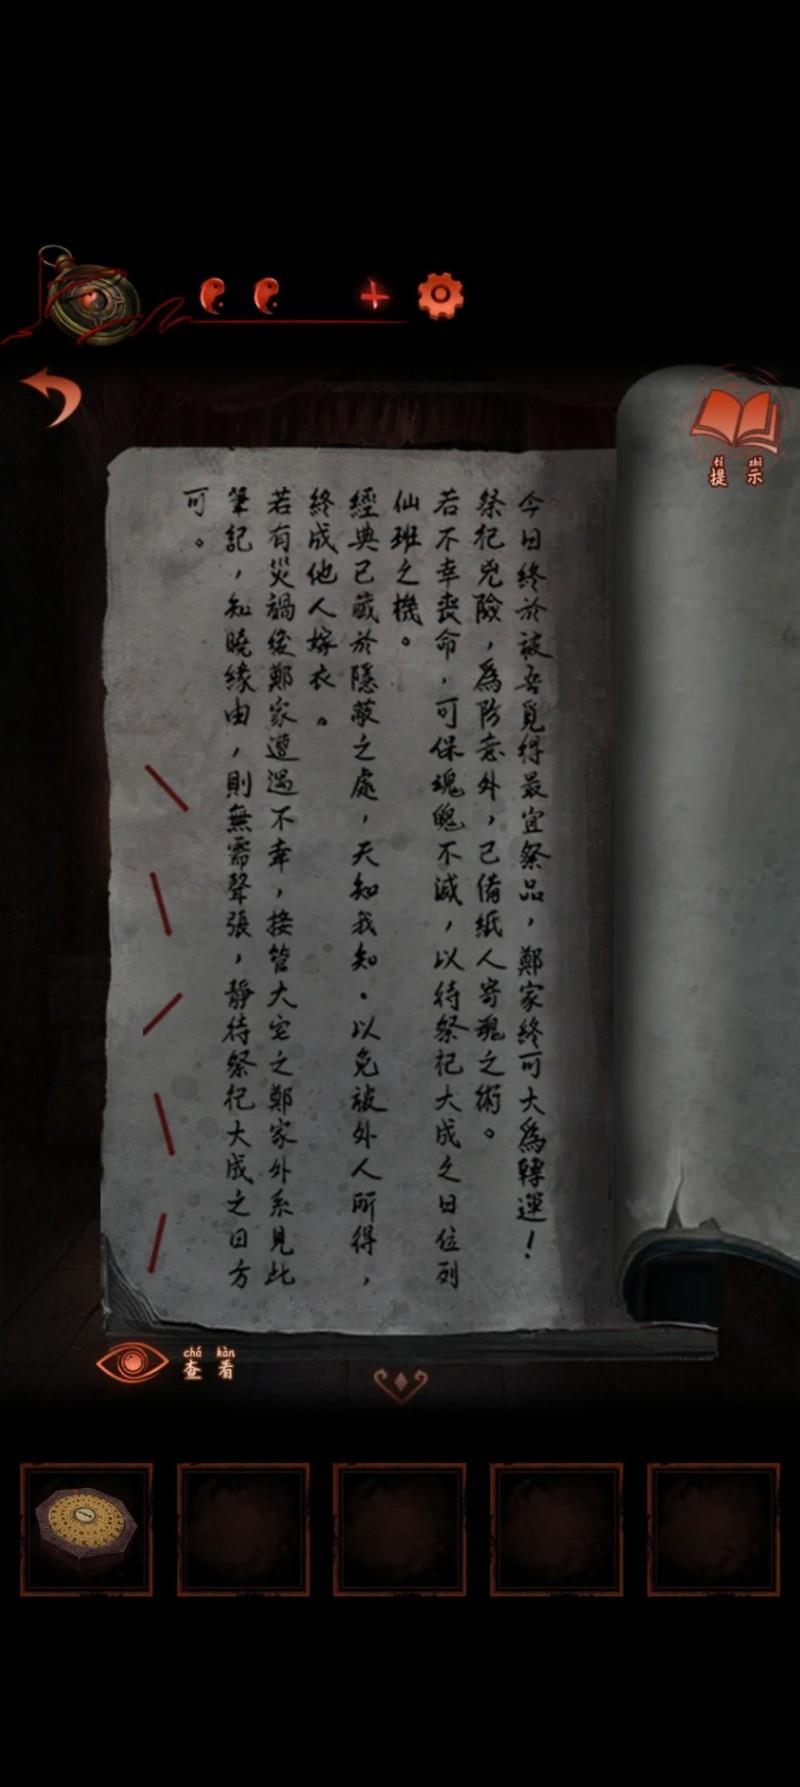 提示
tí shì
今日終於被吾覓得最宜祭品，鄭家終可大為轉運！
祭祀兇險，為防意外，已備紙人寄魂之術。
若不幸喪命，可保魂魄不滅，以待祭祀大成之日位列
仙班之機。
經典已藏於隱蔽之處，天知我知。以免被外人所得，
終成他人嫁衣。
若有災禍後鄭家遭遇不幸，接管大宅之鄭家外系見此
筆記，知曉緣由，則無需聲張，靜待祭祀大成之日方
可。
chá kàn
查看